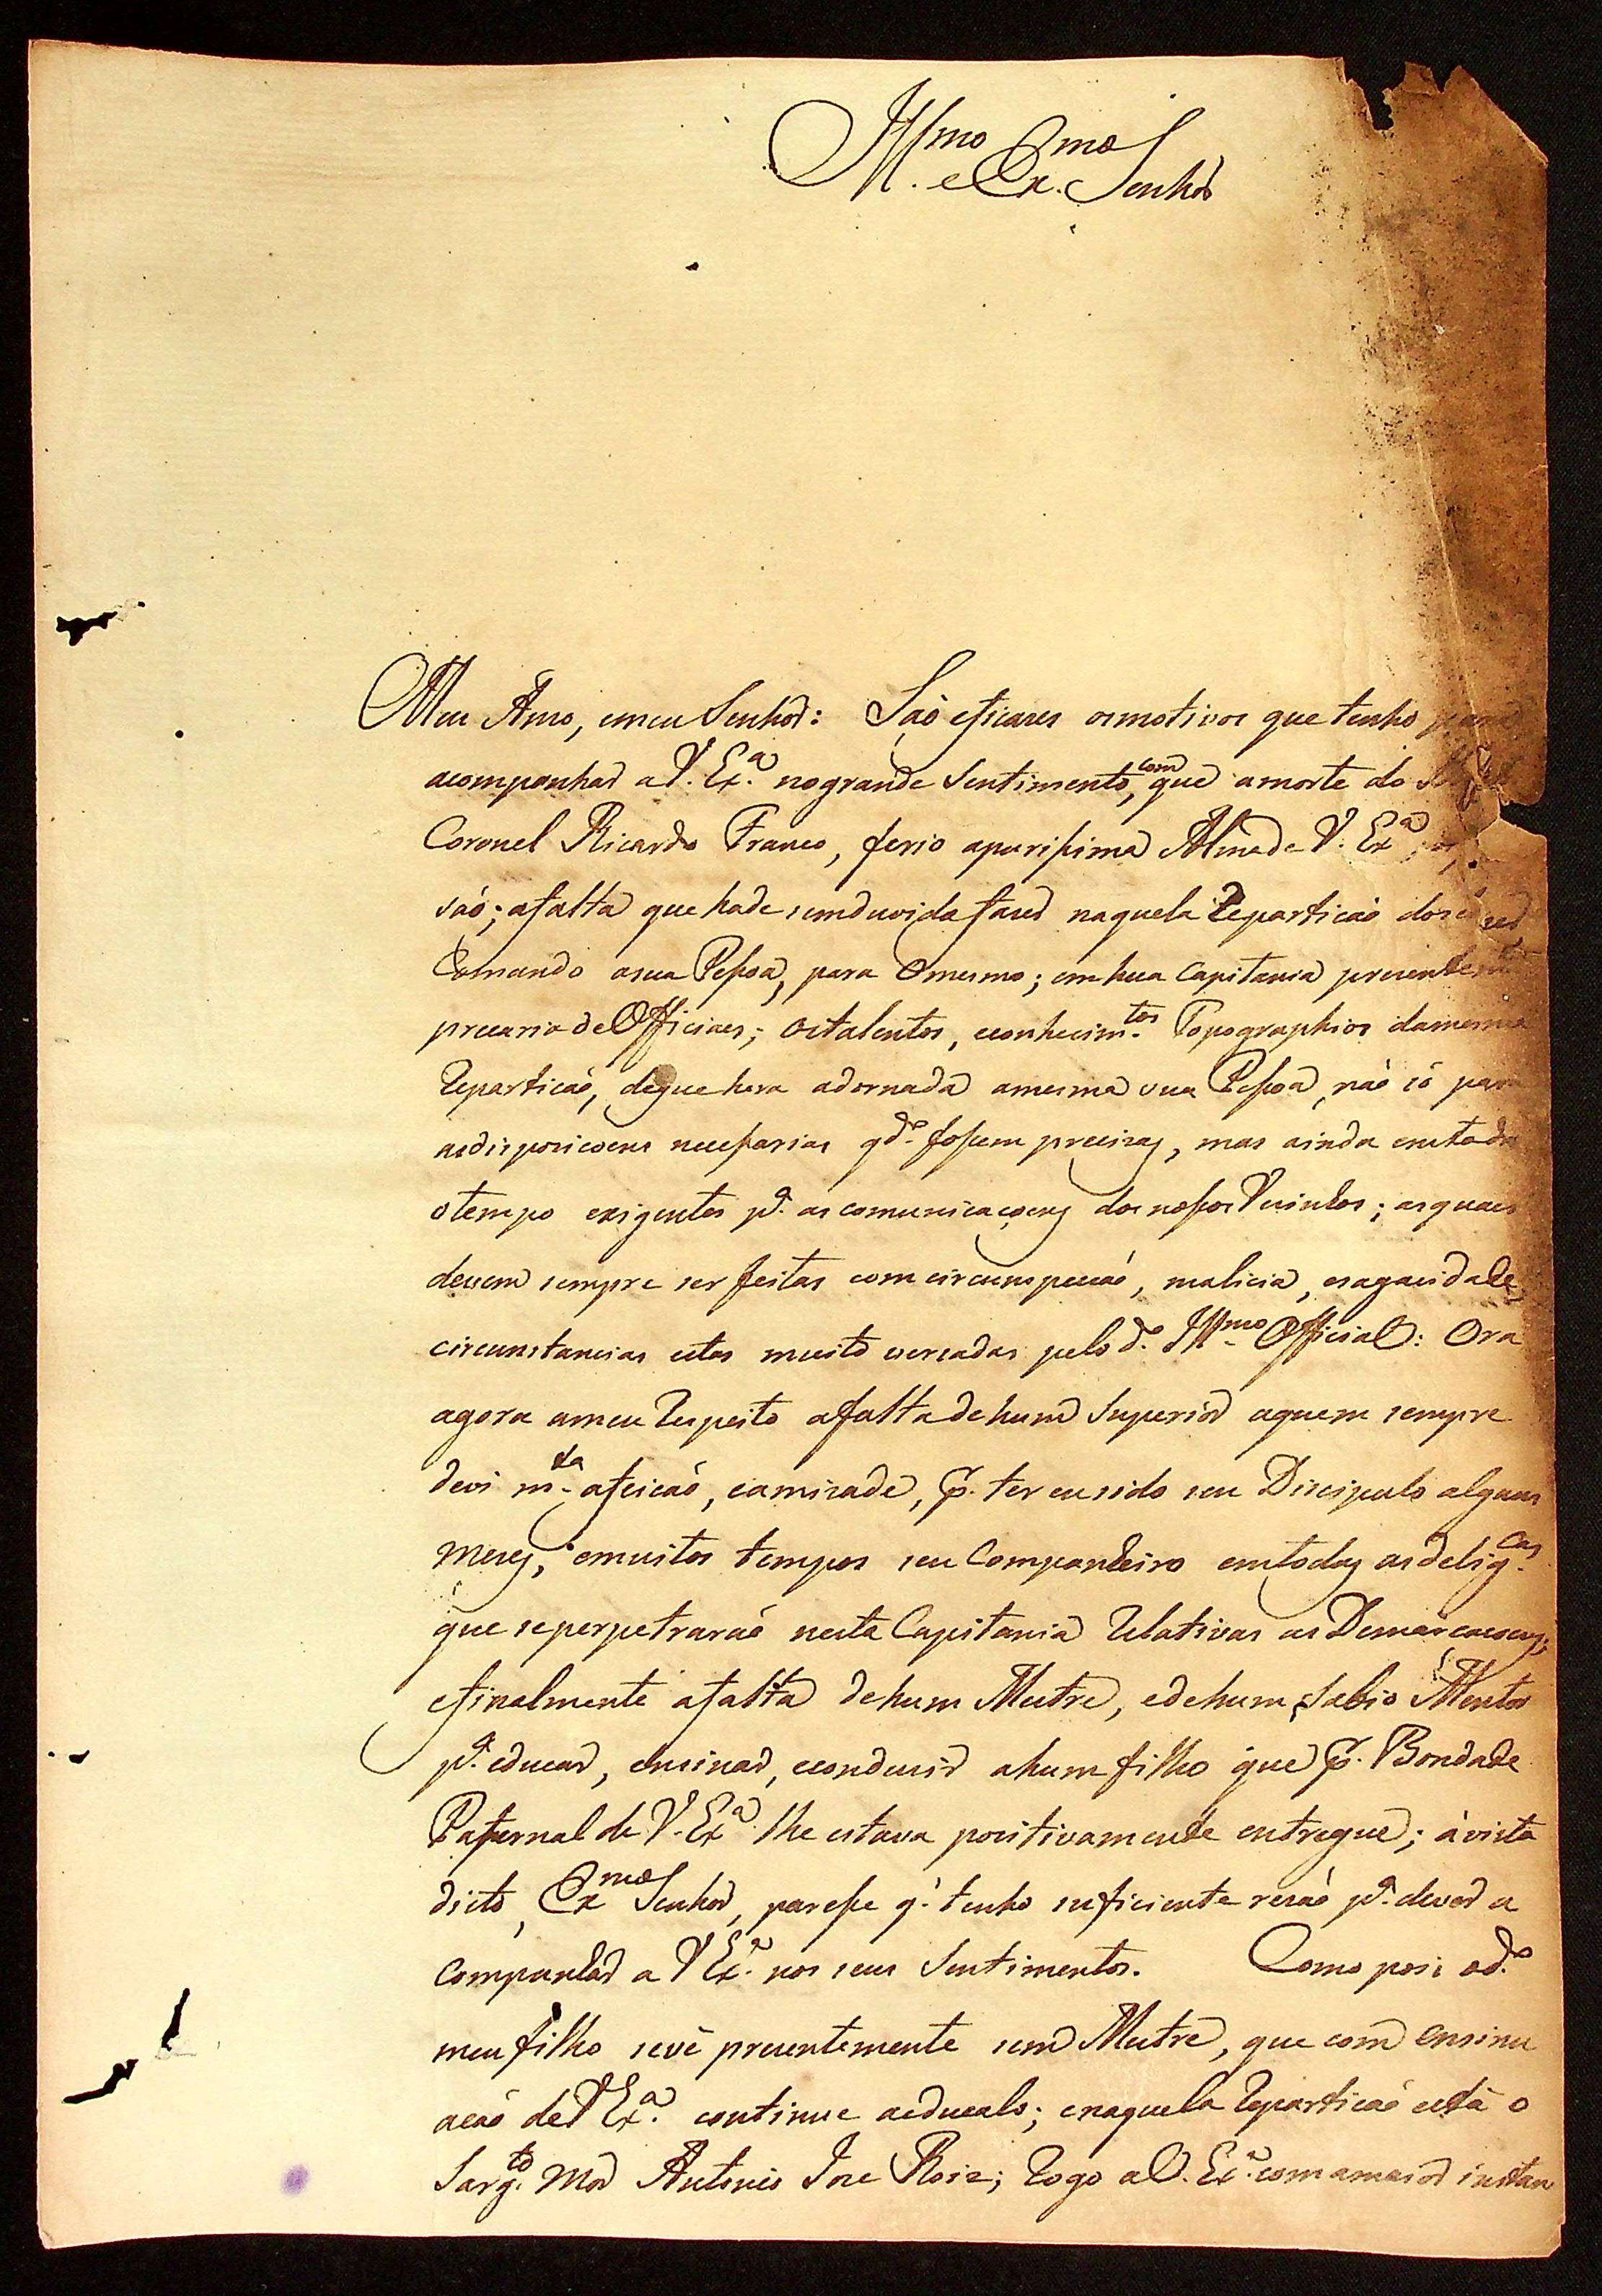 Ill.mo e Ex.mo Senhor
Meu Amo, emeu Senhor: Saõ eficazes osmotivos que tenho para
acompanhar aV. Ex.a nogrande Sentimento, com que amorte do
Coronel Ricardo Franco, ferio apurissima Alma de V. Ex.a
são; afalta que hade semduvida fazer naquela Repartição
Comando asua Pessoa, para Omesmo; em hua Capitania prezentem.te
precaria de Officiaes; Ostalentos, econhecim.tos Topographicos damesma
Repartição, deque hera adornada amesma sua Pessoa, não só para
asdispozicoens necessarias q.do fossem precizas, mas ainda emtodo
otempo exigentes p.a as comunicaçoens dos nossos Vizinhos; asquaes
devem sempre ser feitas com circumspecção, malicia, esagacidade,
circunstancias estas muito versadas pelo d.o Ill.mo Official: Ora
agora ameu Respeito afalta dehum Superior aquem sempre
devi m.ta afeicão, eamizade, p.r ter eu sido seu Discipulo alguns
Mezes, emuitos tempos seu Companheiro emtodas asdelig.cas
que seperpetrarão nesta Capitania Relativas as Demarcacoens;
efinalmente afalta dehum Mestre, edehum Sabio Mentor
p.a educar, ensinar, econduzir ahum filho que p.r Bondade
Paternal de V. Ex.a lhe estava pozitivamente entregue; ávista
disto, Ex.mo Senhor, paresse q.' tenho suficiente rezão p.a dever a
Companhar a V Ex.a nos seus Sentimentos. Como pois od.o
meu filho sevê prezentemente sem Mestre, que com ensinu
acão deV Ex.a continue aeducalo; enaquela Repartição está o
Sarg.to Mor Antonio Joze Roiz; Rogo aV. Ex.a comamaior instan